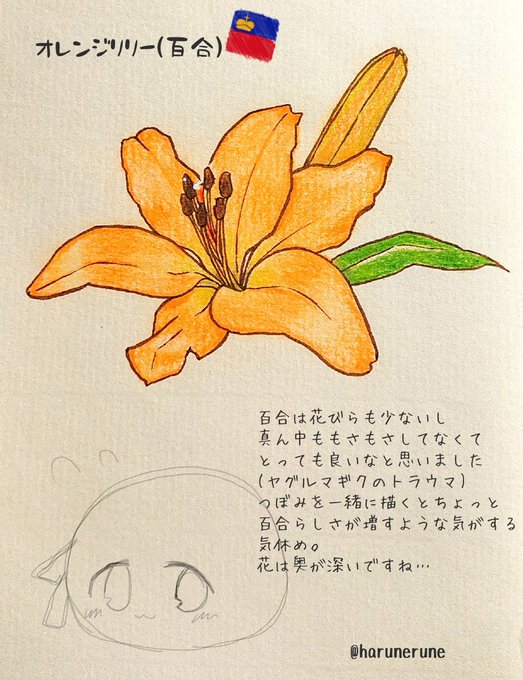 オレンジリリー(百合)
百合は花びらも少ないし
真ん中ももさもさしてなくて
とっても良いなと思いました
(ヤグルマギクのトラウマ)
つぼみを一緒に描くとちょっと
百合らしさが増すような気がする
気休め。
花は奥が深いですね…
@harunerune